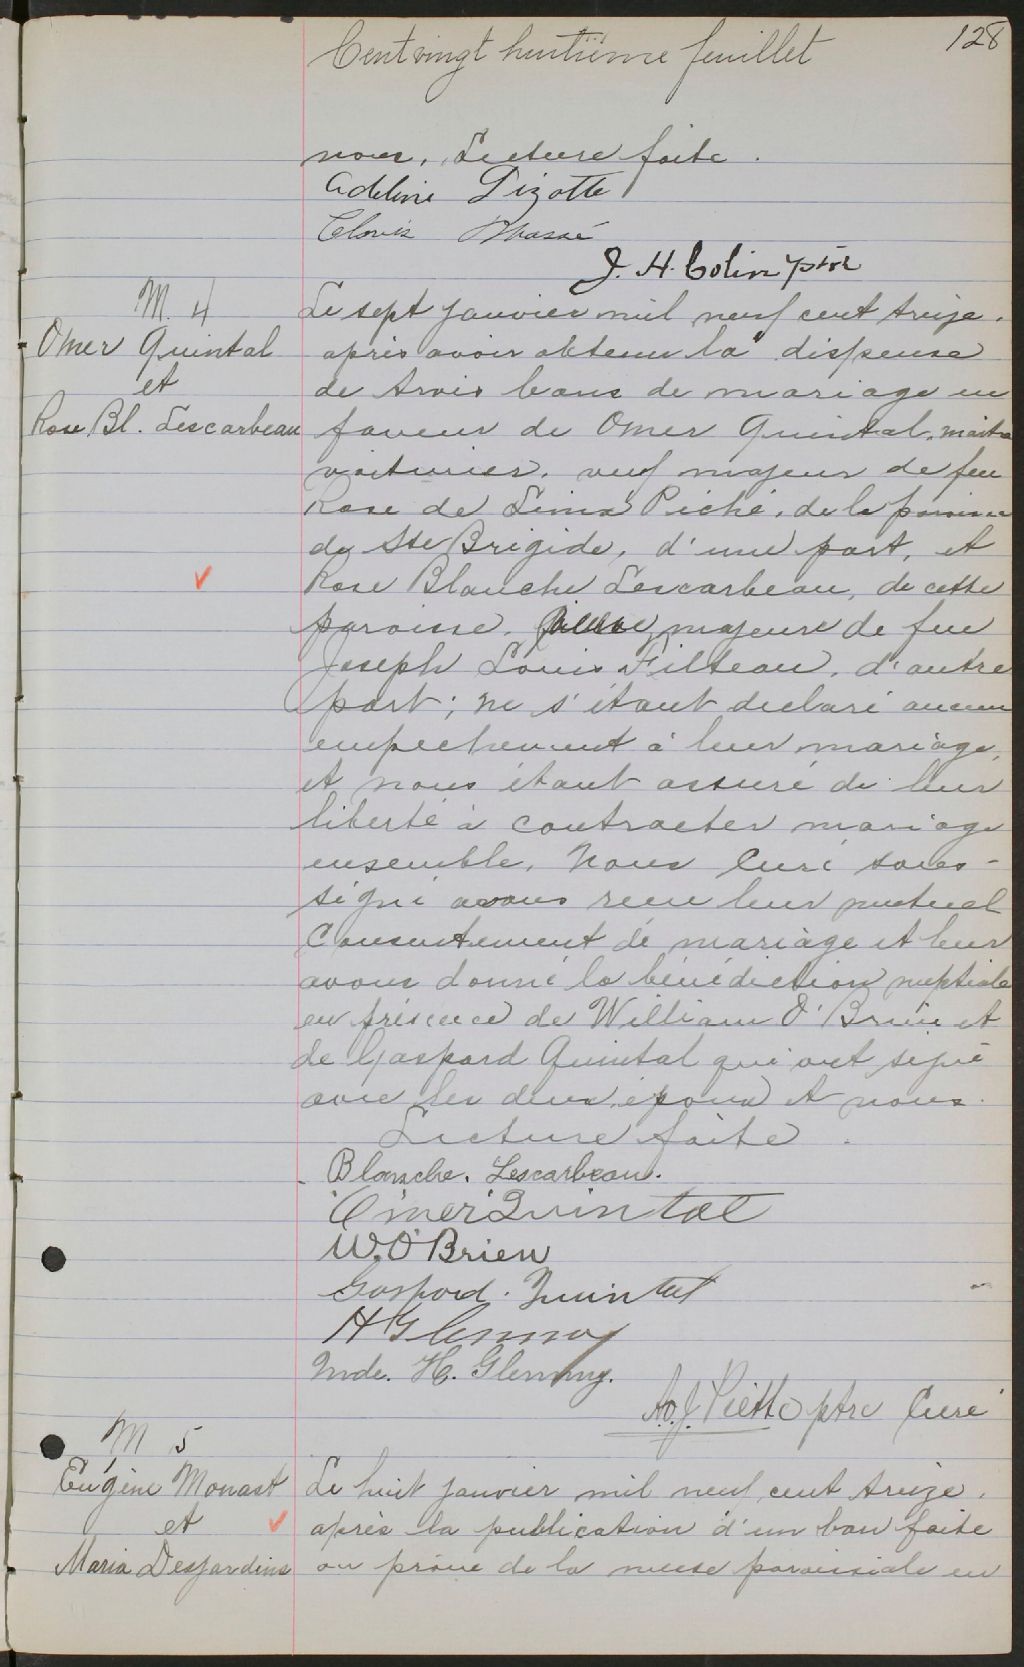 Cent vingt huitième feuillet
128
nous. Lecture faite.
Adeline Pizotte
Clovis
J. H. Colin ptre
M. 4
Omer Quintal
et
Rose Bl. Lescarbeau
Le sept janvier mil neuf cent treize,
après avoir obtenu la dispense
de trois bans de mariage en
faveur de Omer Quintal, maitre
voiturier, veuf majeur de feu
Rose de Lima Piché, de la paroisse
de Ste Brigide, d'une part, et
Rose Blanche Lescarbeau, de cette
paroisse, majeure de feu
Joseph Louis Filteau, d'autre
part; ne s'étant declaré aucun
empechement à leur mariage,
et nous étant assuré de leur
liberté à contracter mariage
ensemble, Nous Curé sous-
signé avons recu leur mutual
Consentement de mariage et leur
avons donné la bénédiction nuptiale
en présence de William O'Brien et
de Gaspard Quintal qui ont signé
avec les deux époux et nous.
Lecture faite.
Blanche. Lescarbeau.
Omer Quintal
W. O'Brien
Gaspard. Quintal
H Glenny
Mde. H. Glenny.
A.O.J. Piette ptre Curé
M 5
Eugène Monast
et
Maria Desjardins
Le huit janvier mil neuf cent treize,
après la publication d'un ban faite
au prône de la messe paroissiale en